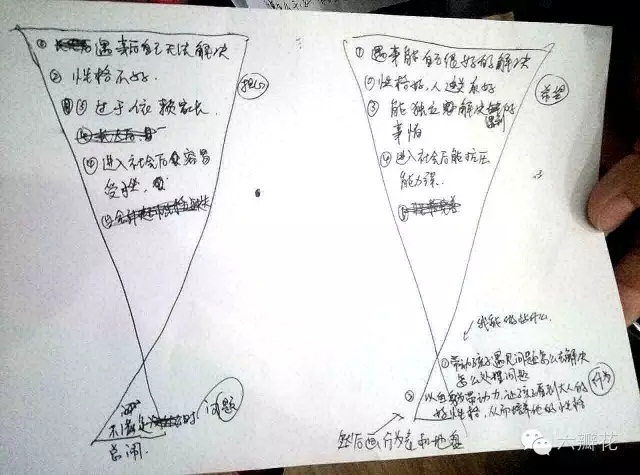 ① 遇事后自己无法解决
② 性格不好.
③ 过于依赖家长.
④ 进入社会后容易
受挫.
担心
问题
不满足 时
总闹.
① 遇事能自己很好的解决
② 性格好,人缘好
③ 能独立解决遇到的
事情
④ 进入社会后能抗压
能力强.
希望
我能做些什么
① 带动孩子遇见问题怎么去解决
怎么处理问题
② 以自身为带动力,让孩子看到大人的
好性格,从而培养他好性格
行为
然后画
六瓣花